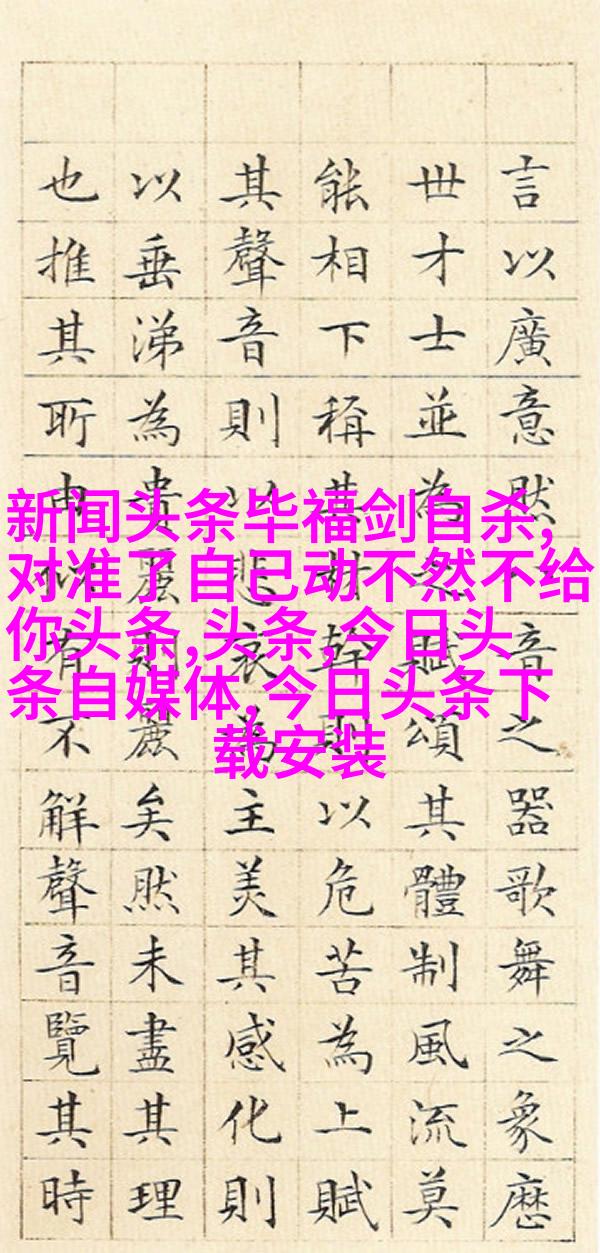 新闻头条毕福剑自杀,
对准了自己动不然不给
你头条,头条,今日头
条自媒体,今日头条下
载安装
言以廣意然音之器歌舞之象歷
世才士並為之賦頌其體制風流莫
能相下稱其材幹則以危苦為上賦
其聲音則以悲哀為主美其感化則
以垂涕為貴麗則麗矣然未盡其理
也推其所由似有不解聲音覽其時